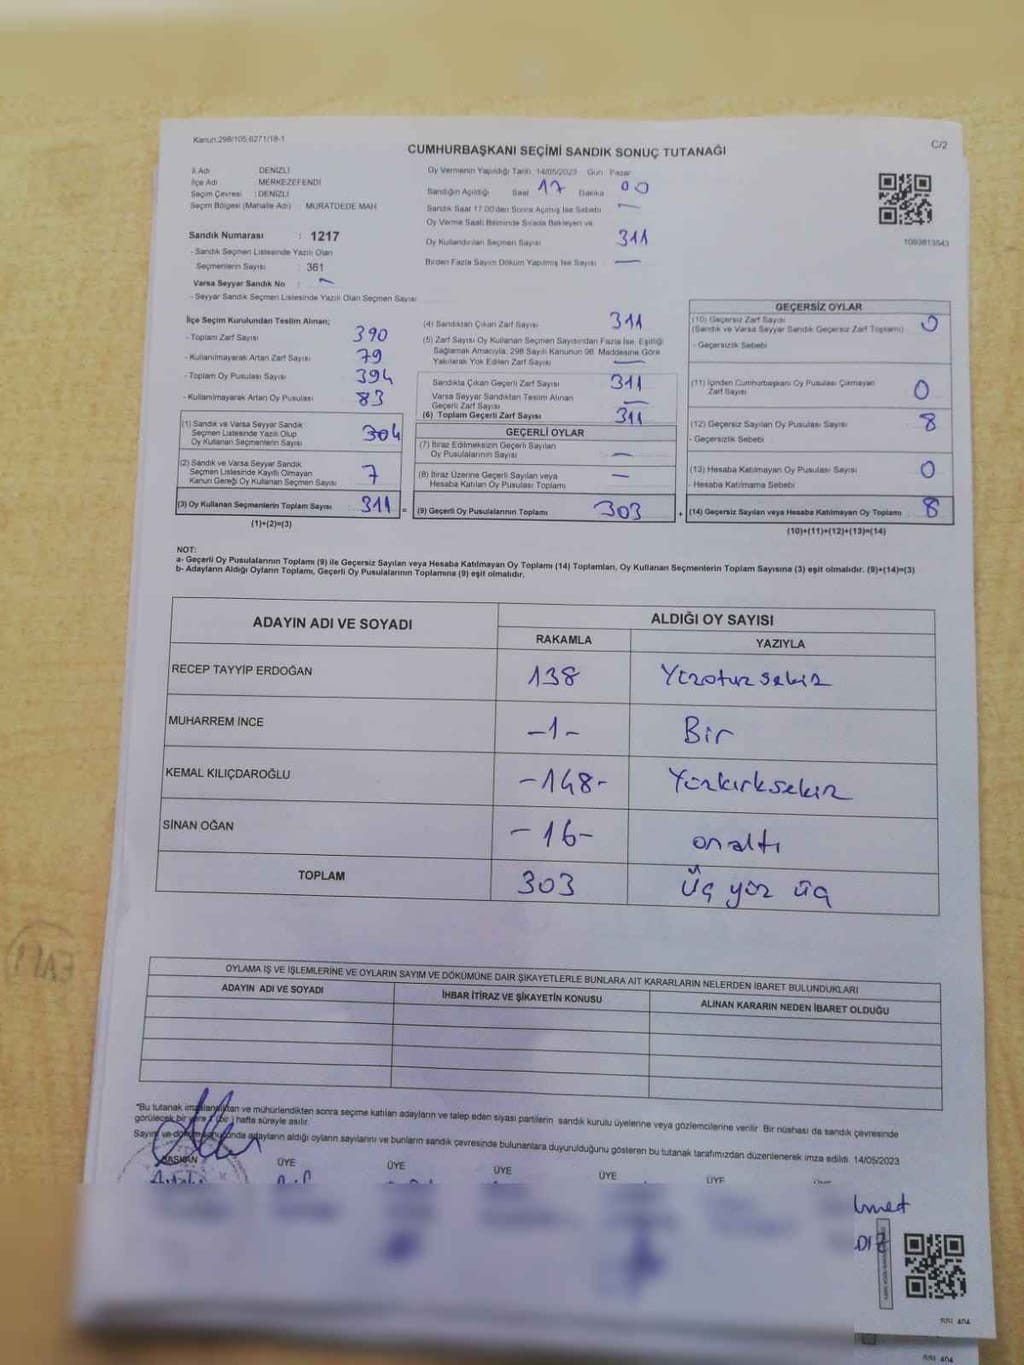 Kanun:298/105;6271/18-1
C/2
CUMHURBAŞKANI SEÇİMİ SANDIK SONUÇ TUTANAĞI
İl Adı DENİZLİ
İlçe Adı MERKEZEFENDİ
Seçim Çevresi : DENİZLİ
Seçim Bölgesi (Mahalle Adı) : MURATDEDE MAH
Sandık Numarası : 1217
- Sandık Seçmen Listesinde Yazılı Olan
Seçmenlerin Sayısı : 361
Varsa Seyyar Sandık No : -
- Seyyar Sandık Seçmen Listesinde Yazılı Olan Seçmen Sayısı
Oy Vermenin Yapıldığı Tarih 14/05/2023 Gün Pazar
Sandığın Açıldığı Saat 17 Dakika 00
Sandık Saat 17.00'den Sonra Açılmış İse Sebebi —
Oy Verme Saati Bitiminde Sırada Bekleyen ve
Oy Kullandırılan Seçmen Sayısı 311
Birden Fazla Sayım Döküm Yapılmış İse Sayısı —
1093813543
İlçe Seçim Kurulundan Teslim Alınan;
- Toplam Zarf Sayısı 390
- Kullanılmayarak Artan Zarf Sayısı 79
- Toplam Oy Pusulası Sayısı 394
- Kullanılmayarak Artan Oy Pusulası 83
(1) Sandık ve Varsa Seyyar Sandık
Seçmen Listesinde Yazılı Olup
Oy Kullanan Seçmenlerin Sayısı 304
(2) Sandık ve Varsa Seyyar Sandık
Seçmen Listesinde Kayıtlı Olmayan
Kanun Gereği Oy Kullanan Seçmen Sayısı 7
(3) Oy Kullanan Seçmenlerin Toplam Sayısı 311 =
(1)+(2)=(3)
(4) Sandıktan Çıkan Zarf Sayısı 311
(5) Zarf Sayısı Oy Kullanan Seçmen Sayısından Fazla İse, Eşitliği
Sağlamak Amacıyla; 298 Sayılı Kanunun 98. Maddesine Göre
Yakılarak Yok Edilen Zarf Sayısı —
Sandıkta Çıkan Geçerli Zarf Sayısı 311
Varsa Seyyar Sandıktan Teslim Alınan
Geçerli Zarf Sayısı —
(6) Toplam Geçerli Zarf Sayısı 311
GEÇERLİ OYLAR
(7) İtiraz Edilmeksizin Geçerli Sayılan
Oy Pusulalarının Sayısı —
(8) İtiraz Üzerine Geçerli Sayılan veya
Hesaba Katılan Oy Pusulası Toplamı —
(9) Geçerli Oy Pusulalarının Toplamı 303 +
GEÇERSİZ OYLAR
(10) Geçersiz Zarf Sayısı 0
(Sandık ve Varsa Seyyar Sandık Geçersiz Zarf Toplamı)
- Geçersizlik Sebebi
(11) İçinden Cumhurbaşkanı Oy Pusulası Çıkmayan
Zarf Sayısı 0
(12) Geçersiz Sayılan Oy Pusulası Sayısı 8
- Geçersizlik Sebebi
(13) Hesaba Katılmayan Oy Pusulası Sayısı 0
- Hesaba Katılmama Sebebi
(14) Geçersiz Sayılan veya Hesaba Katılmayan Oy Toplamı 8
(10)+(11)+(12)+(13)=(14)
NOT:
a- Geçerli Oy Pusulalarının Toplamı (9) ile Geçersiz Sayılan veya Hesaba Katılmayan Oy Toplamı (14) Toplamları, Oy Kullanan Seçmenlerin Toplam Sayısına (3) eşit olmalıdır. (9)+(14)=(3)
b- Adayların Aldığı Oyların Toplamı, Geçerli Oy Pusulalarının Toplamına (9) eşit olmalıdır.
ADAYIN ADI VE SOYADI ALDIĞI OY SAYISI
RAKAMLA YAZIYLA
RECEP TAYYİP ERDOĞAN 138 Yüzotuzsekiz
MUHARREM İNCE -1- Bir
KEMAL KILIÇDAROĞLU -148- Yüzkırksekiz
SİNAN OĞAN -16- onaltı
TOPLAM 303 Üç yüz üç
OYLAMA İŞ VE İŞLEMLERİNE VE OYLARIN SAYIM VE DÖKÜMÜNE DAİR ŞİKAYETLERLE BUNLARA AİT KARARLARIN NELERDEN İBARET BULUNDUKLARI
ADAYIN ADI VE SOYADI İHBAR İTİRAZ VE ŞİKAYETİN KONUSU ALINAN KARARIN NEDEN İBARET OLDUĞU
*Bu tutanak imzalandıktan ve mühürlendikten sonra seçime katılan adayların ve talep eden siyasi partilerin sandık kurulu üyelerine veya gözlemcilerine verilir. Bir nüshası da sandık çevresinde
görülecek bir yere 1 (bir) hafta süreyle asılır.
Sayım ve döküm sonunda adayların aldığı oyların sayılarını ve bunların sandık çevresinde bulunanlara duyurulduğunu gösteren bu tutanak tarafımızdan düzenlenerek imza edildi. 14/05/2023
BAŞKAN ÜYE ÜYE ÜYE ÜYE ÜYE